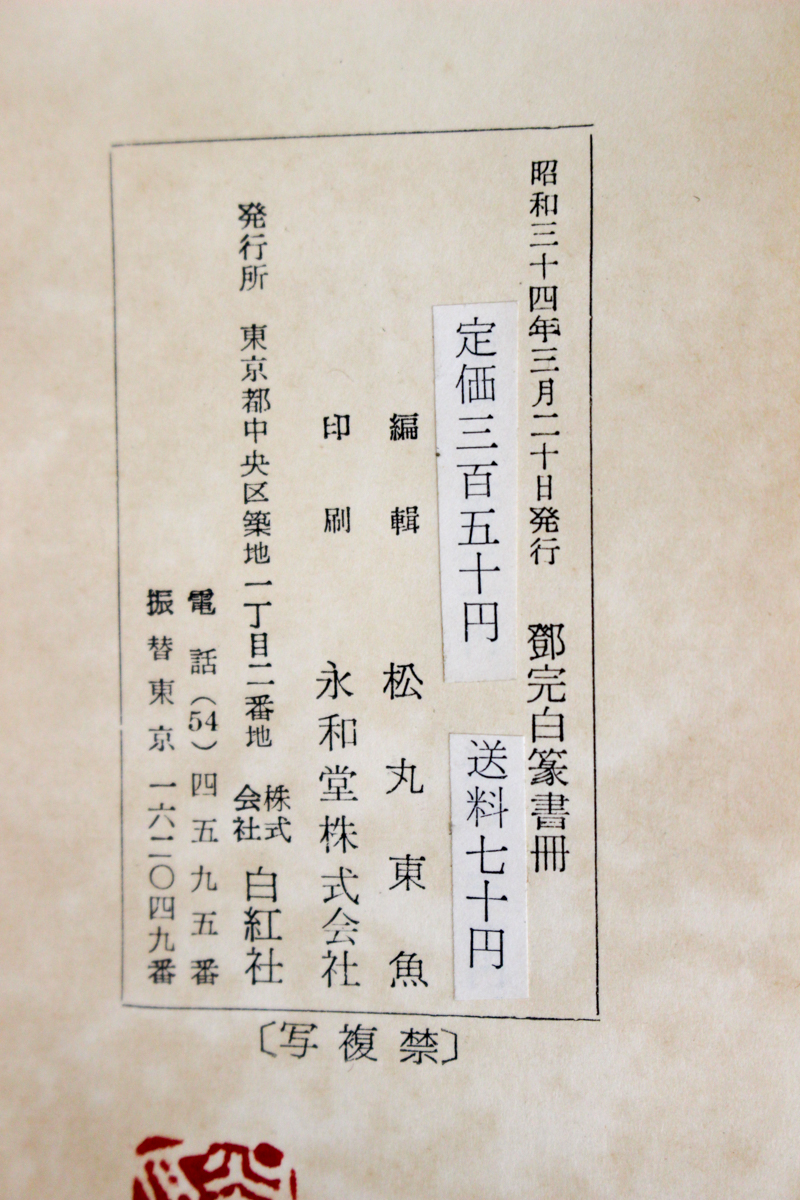 昭和三十四年三月二十日発行　鄧完白篆書冊
定価三百五十円　送料七十円
編輯　松丸東魚
印刷　永和堂株式会社
発行所　東京都中央区築地一丁目二番地　株式会社　白紅社
電話（54）四五九五番
振替東京一六二〇四九番
〔写複禁〕